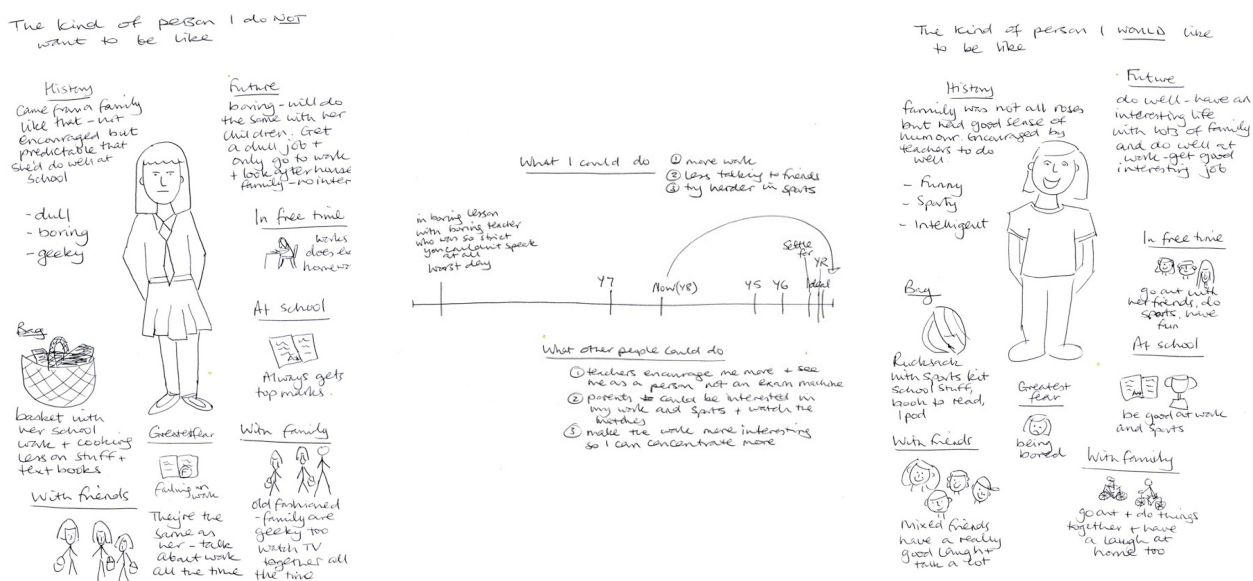 The kind of person I do NOT
want to be like
History
Came from a family
like that - not
encouraged but
predictable that
she'd do well at
school
- dull
- boring
- geeky
Bag
basket with
her school
work + cooking
lesson stuff +
text books
With friends
They're the
same as
her - talk
about work
all the time
Future
boring - will do
the same with her
children. Get
a dull job +
only go to work
+ look after house
family - no inter
In free time
works
does
At school
Always gets
top marks.
Greatest fear
F
failing in
work
With family
old fashioned
- family are
geeky too
watch TV
together all
the time
in boring lesson
with boring teacher
who was so strict
you couldn't speak
at all
worst day
What I could do
① more work
② less talking to friends
③ try harder in sports
Y7
Now (Y8)
Y5
Y6
Settle
for
YR
Ideal
What other people could do
① teachers encourage me more + see
me as a person not an exam machine
② parents could be interested in
my work and sports + watch the
matches
③ make the work more interesting
so I can concentrate more
The kind of person I WOULD like
to be like
History
family was not all roses
but had good sense of
humour. Encouraged by
teachers to do
well.
- Funny
- Sporty
- Intelligent
Bag
Rucksack
with sports kit
school stuff,
book to read,
ipod
With friends
mixed friends
have a really
good laugh +
talk a lot
Greatest
fear
being
bored
Future
do well - have an
interesting life
with lots of family
and do well at
work - get good
interesting job
In free time
go out with
her friends, do
sports, have
fun
At school
be good at work
and sports
With family
go out + do things
together + have
a laugh at
home too